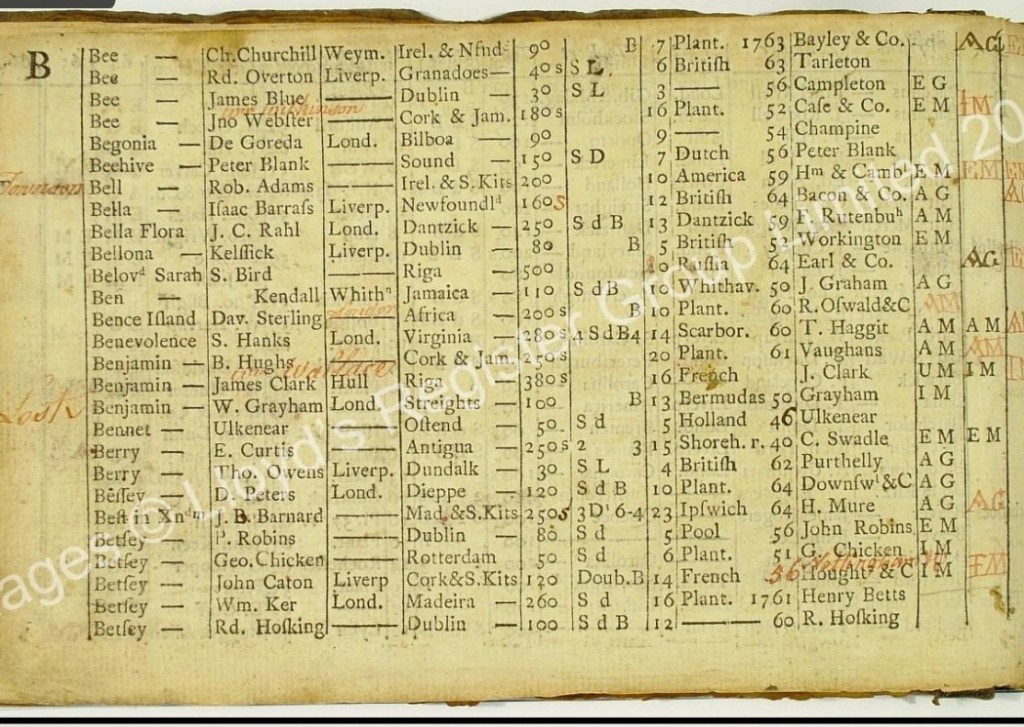 B
Bee — Ch.Churchill Weym. Irel. & Nfnd 90 B 7 Plant. 1763 Bayley & Co. AG
Bee — Rd. Overton Liverp. Granadoes— 40s S L 6 Britiſh 63 Tarleton
Bee — James Blue —— Dublin — 30 S L 3 —— 56 Campleton E G
Bee — Jno Webſter —— Cork & Jam. 180s 16 Plant. 52 Caſe & Co. E M IM
Begonia — De Goreda Lond. Bilboa — 90 9 —— 54 Champine
Beehive — Peter Blank —— Sound — 150 S D 7 Dutch 56 Peter Blank
Bell — Rob. Adams —— Irel. & S. Kits 200 10 America 59 Hm & Cambl E M EM
Bella — Iſaac Barraſs Liverp. Newfoundld 160s 12 Britiſh 64 Bacon & Co. A G
Bella Flora J. C. Rahl Lond. Dantzick — 250 S d B 13 Dantzick 59 F. Rutenbuh A M
Bellona — Kelſſick Liverp. Dublin — 80 B 5 Britiſh 52 Workington E M
Belovd Sarah S. Bird —— Riga — 500 10 Ruſſia 64 Earl & Co. AG
Ben — Kendall Whithn Jamaica — 110 S dB 10 Whithav. 50 J. Graham A G
Bence Iſland Dav. Sterling Africa — 200s B 10 Plant. 60 R. Oſwald&C AM
Benevolence S. Hanks Lond. Virginia — 280s 4 S dB4 14 Scarbor. 60 T. Haggit A M A M
Benjamin — B. Hughs —— Cork & Jam. 250s 20 Plant. 61 Vaughans A M AM
Benjamin — James Clark Hull Riga — 380s 16 French J. Clark U M I M
Lost Benjamin — W. Grayham Lond. Streights — 100 B 13 Bermudas 50 Grayham I M
Bennet — Ulkenear —— Oſtend — 50 S d 5 Holland 46 Ulkenear
Berry — E. Curtis —— Antigua — 250s 2 3 15 Shoreh. r. 40 C. Swadle E M E M
Berry — Tho. Owens Liverp. Dundalk — 30 S L 4 Britiſh 62 Purthelly A G
Beſſey — D. Peters Lond. Dieppe — 120 S d B 10 Plant. 64 Downſwl &C A G
Beſt in Xndm J. B. Barnard —— Mad.&S.Kits 250s 3D' 6-4 23 Ipſwich 64 H. Mure A G AG
Betſey — P. Robins —— Dublin — 80 S d 5 Pool 56 John Robins E M
Betſey — Geo. Chicken —— Rotterdam 50 S d 6 Plant. 51 G. Chicken I M
Betſey — John Caton Liverp Cork&S.Kits 120 Doub.B 14 French 56 & C I M EM
Betſey — Wm. Ker Lond. Madeira — 260 S d 16 Plant. 1761 Henry Betts
Betſey — Rd. Hoſking —— Dublin — 100 S d B 12 —— 60 R. Hoſking